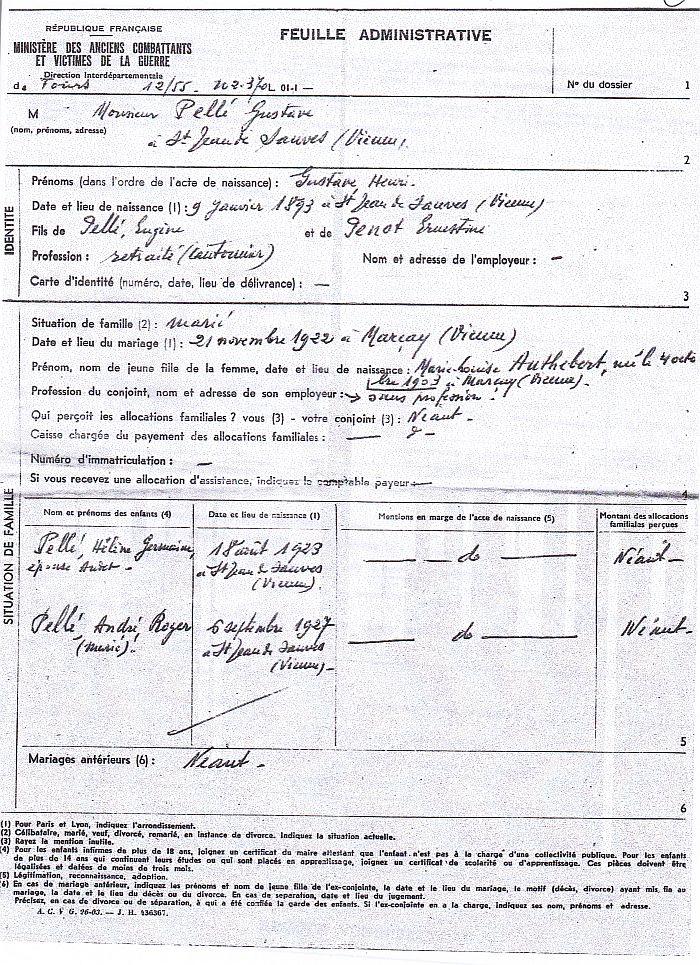 RÉPUBLIQUE FRANÇAISE
MINISTÈRE DES ANCIENS COMBATTANTS
ET VICTIMES DE LA GUERRE
Direction Interdépartementale
de Tours 12/55
FEUILLE ADMINISTRATIVE
N° du dossier 1
M Monsieur Pellé Gustave
(nom, prénoms, adresse)
à St Jean de Sauves (Vienne).
2
IDENTITE
Prénoms (dans l'ordre de l'acte de naissance) : Gustave, Henri.
Date et lieu de naissance (1) : 9 janvier 1893 à St Jean de Sauves (Vienne)
Fils de Pellé, Eugène et de Penot Ernestine
Profession : retraité (Cantonnier) Nom et adresse de l'employeur : —
Carte d'identité (numéro, date, lieu de délivrance) : —
3
SITUATION DE FAMILLE
Situation de famille (2) : marié
Date et lieu du mariage (1) : 21 novembre 1922 à Marçay (Vienne)
Prénom, nom de jeune fille de la femme, date et lieu de naissance : Marie-Louise Authebert, née le 4 octo
bre 1903 à Marçay (Vienne).
Profession du conjoint, nom et adresse de son employeur : sans profession.
Qui perçoit les allocations familiales ? vous (3) - votre conjoint (3) : Néant -
Caisse chargée du payement des allocations familiales : —
Numéro d'immatriculation : —
Si vous recevez une allocation d'assistance, indiquez le comptable payeur : —
4
Nom et prénoms des enfants (4) Date et lieu de naissance (1) Mentions en marge de l'acte de naissance (5) Montant des allocations
familiales perçues
Pellé, Hélène Germaine, 18 août 1923 — do — Néant -
épouse à St Jean de Sauves
(Vienne).
Pellé, André, Roger 6 septembre 1927 — do — Néant -
(marié). à St Jean de Sauves
(Vienne) -
5
Mariages antérieurs (6) : Néant -
6
(1) Pour Paris et Lyon, indiquez l'arrondissement.
(2) Célibataire, marié, veuf, divorcé, remarié, en instance de divorce. Indiquez la situation actuelle.
(3) Rayez la mention inutile.
(4) Pour les enfants infirmes de plus de 18 ans, joignez un certificat du maire attestant que l'enfant n'est pas à la charge d'une collectivité publique. Pour les enfants
de plus de 14 ans qui continuent leurs études ou qui sont placés en apprentissage, joignez un certificat de scolarité ou d'apprentissage. Ces pièces doivent être
légalisées et datées de moins de trois mois.
(5) Légitimation, reconnaissance, adoption.
(6) En cas de mariage antérieur, indiquez les prénoms et nom de jeune fille de l'ex-conjointe, la date et le lieu du mariage, le motif (décès, divorce) ayant mis fin au
mariage, la date et le lieu du décès ou du divorce. En cas de séparation, date et lieu du jugement.
Précisez, en cas de divorce ou de séparation, à qui a été confiée la garde des enfants. Si l'ex-conjointe en a la charge, indiquez ses nom, prénoms et adresse.
A. C. V G. 26-03. — J. H. 436367.